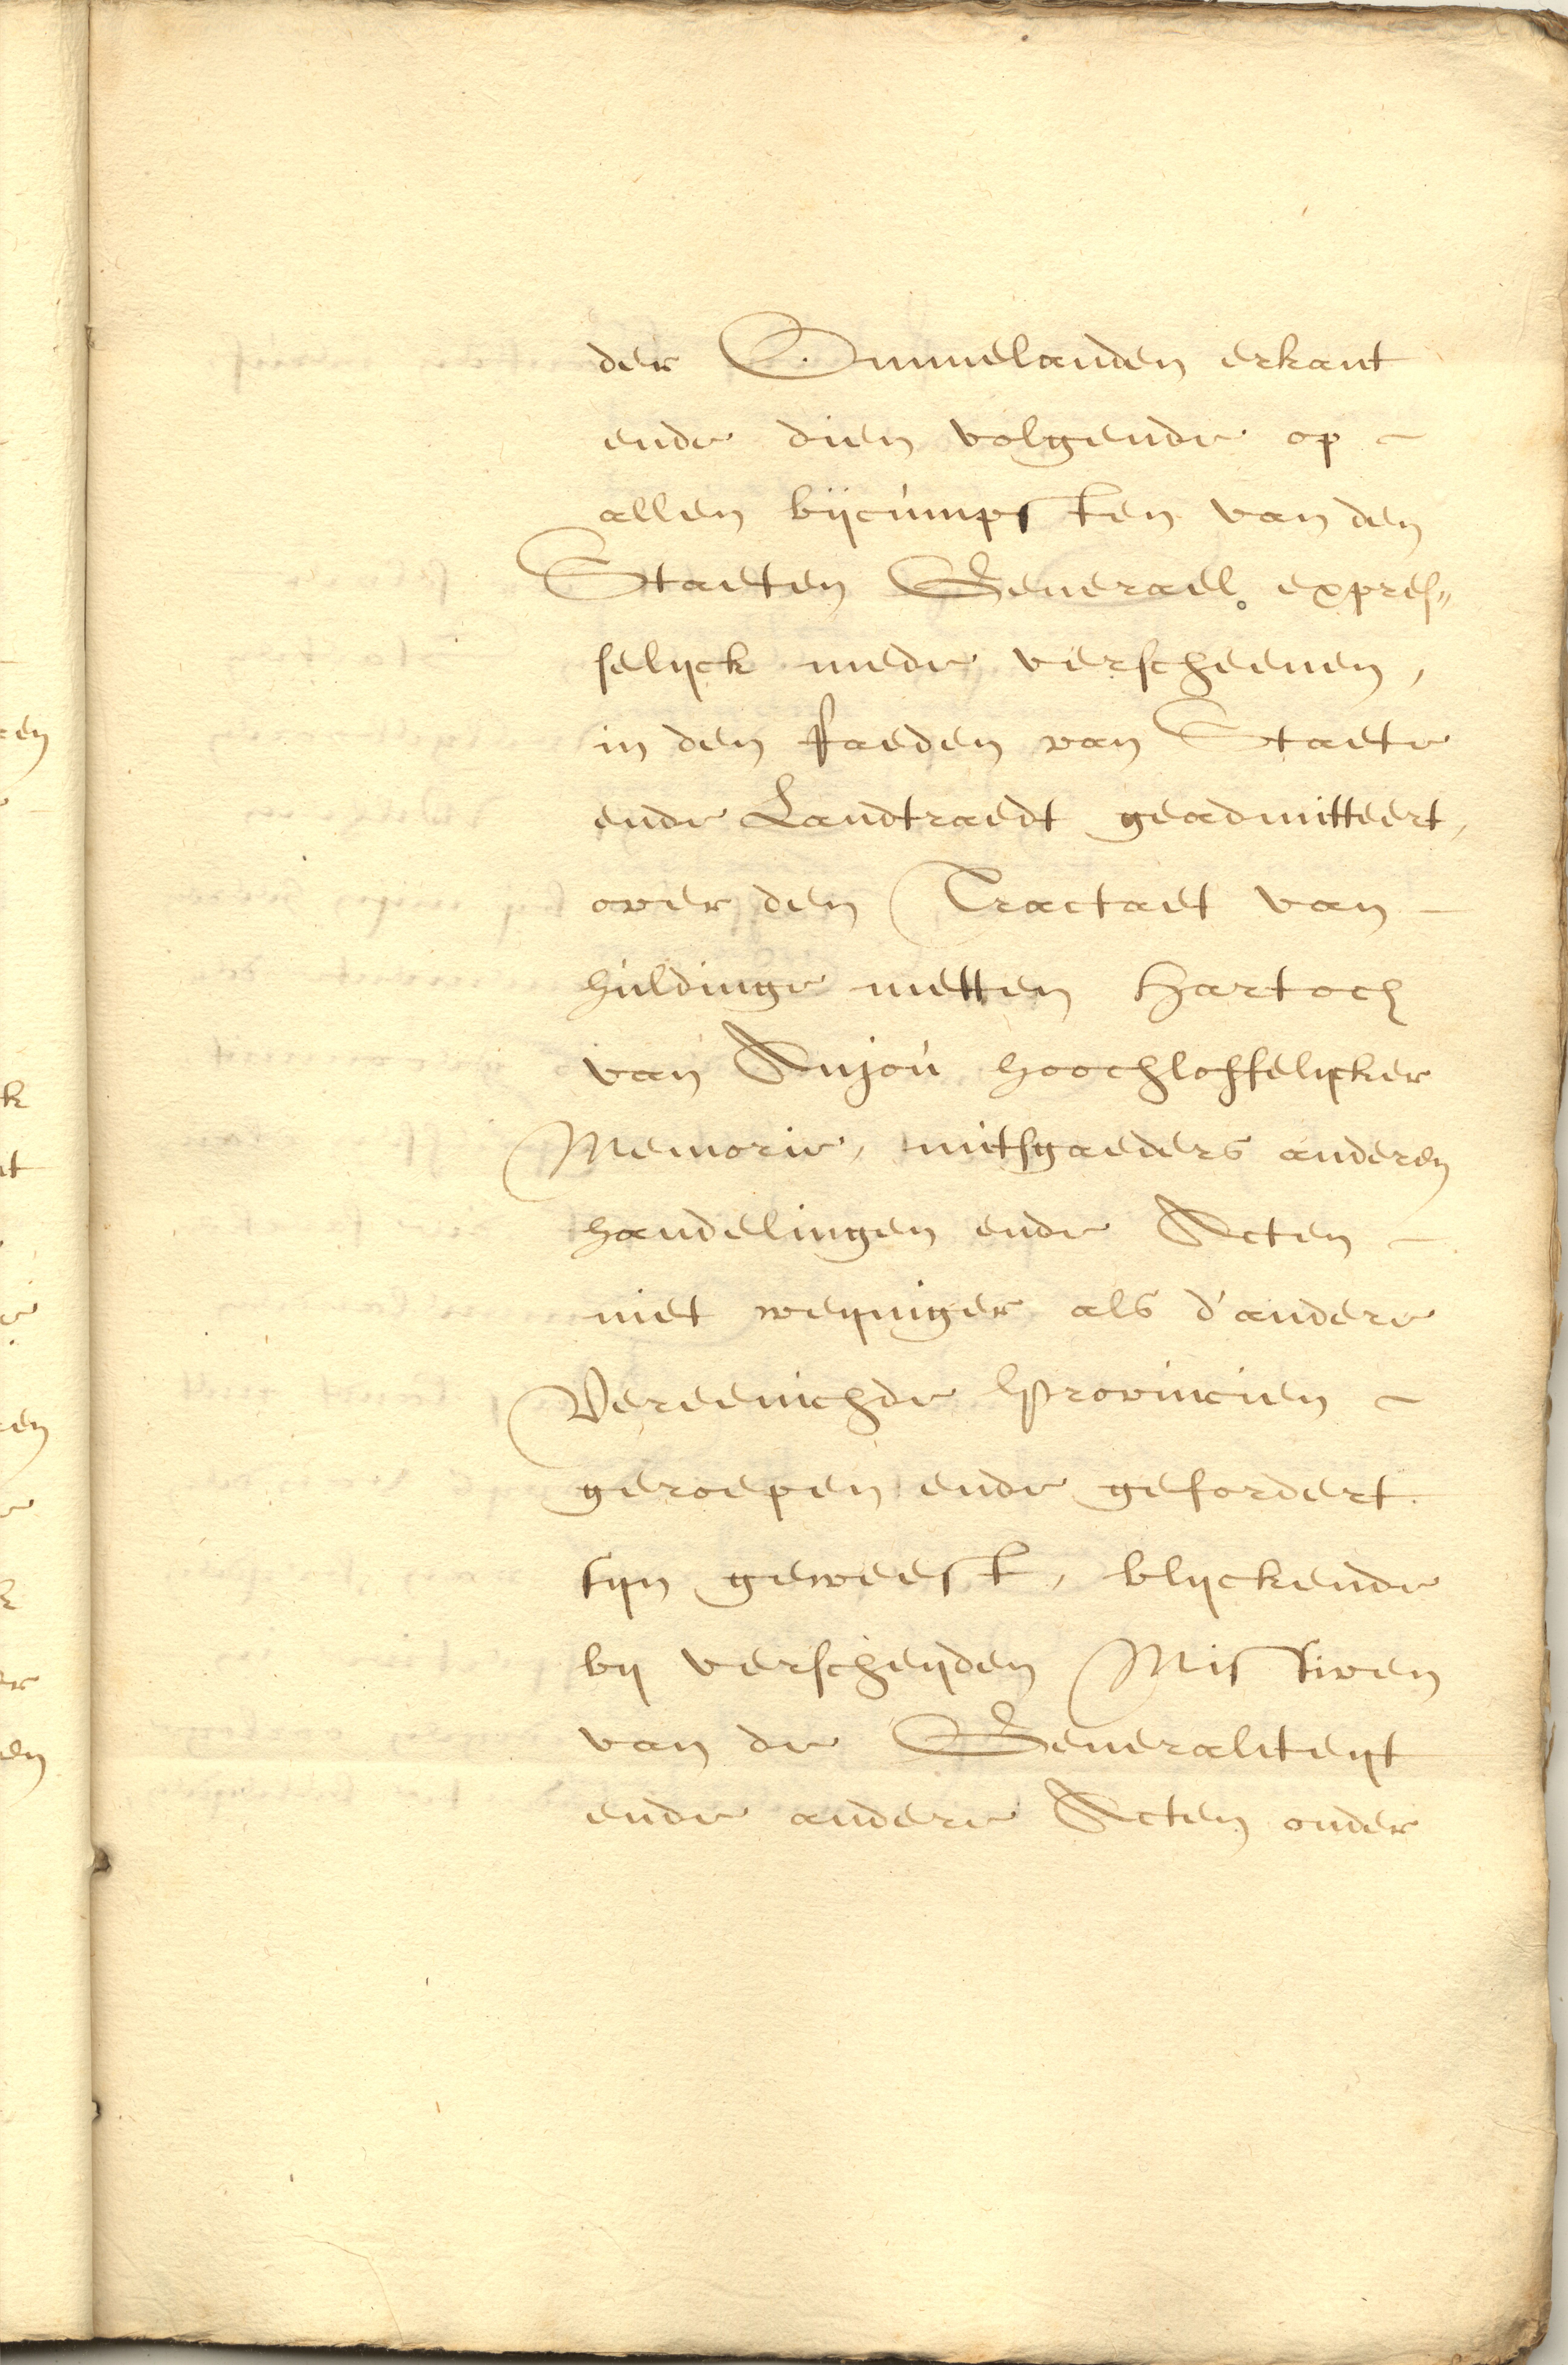 der Ommelanden erkant
ende dien volgende op -
allen bijcùmpsten van den
Staeten Generael expres„
selijck mede verscheenen,
in den raeden van Staete
ende Landtraedt geadmitteert,
over den Tractaet van -
hùldinge metten Hartoch
van Anjoù hoochloffelijcker
Memorie, mitsgaeders anderen
handelingen ende Acten -
niet weijniger als d'andere
Vereenichde Provincien -
geroepen ende gefordert
sijn geweest, blijckende
bij verscheijden Missiven
van de Generaliteijt
ende andere Acten onder